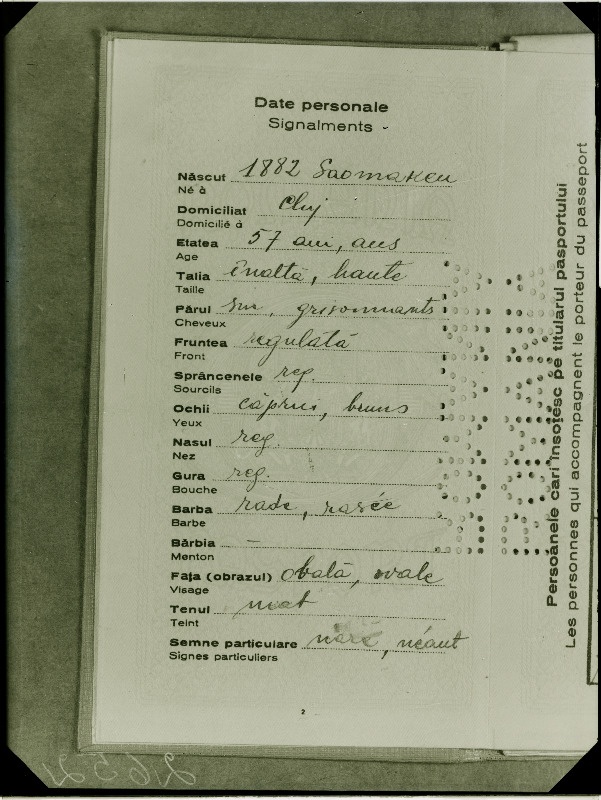 Date personale
Signalments
Născut 1882
Né à
Domiciliat Cluj
Domicilié à
Etatea 57 ani, ans
Age
Talia înaltă, haute
Taille
Părul sur, grisonnants
Cheveux
Fruntea regulată
Front
Sprâncenele reg.
Sourcils
Ochii căprui, bruns
Yeux
Nasul reg.
Nez
Gura reg.
Bouche
Barba rade, rasée
Barbe
Bărbia —
Menton
Fața (obrazul) obală, ovale
Visage
Tenul mat
Teint
Semne particulare néant
Signes particuliers
2
Persoanele cari însoțesc pe titularul pasportului
Les personnes qui accompagnent le porteur du passeport
2652